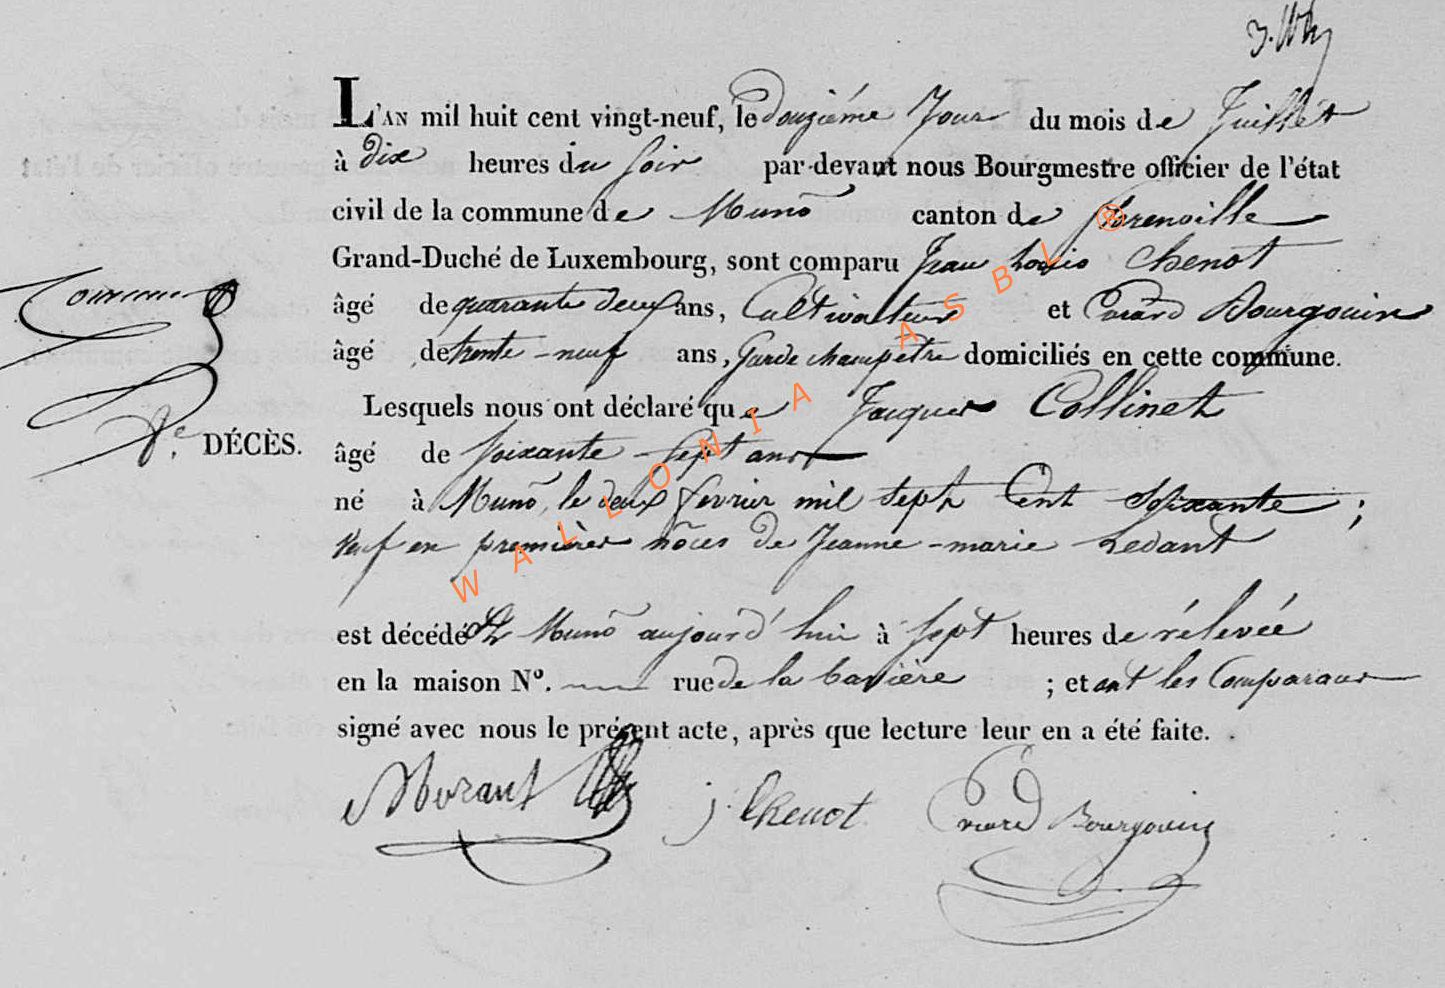 L'AN mil huit cent vingt-neuf, le Douziéme Jour du mois de Juillet
à Dix heures du soir par-devant nous Bourgmestre officier de l'état
civil de la commune de Muno canton de florenville
Grand-Duché de Luxembourg, sont comparu Jean Louis Chenot
âgé de quarante deux ans, Cultivateur et Evrard Bourgouin
âgé de trente-neuf ans, Garde champêtre domiciliés en cette commune.
Lesquels nous ont déclaré que Jacques Collinet
DÉCÈS.
âgé de soixante sept ans
né à Muno, le deux fevrier mil sept Cent Soixante ;
veuf en premières nôces de Jeanne-marie Ledant
est décédé à Muno aujourd'hui à sept heures de rélevée
en la maison No. rue de la barrière ; et ont les Comparans
signé avec nous le présent acte, après que lecture leur en a été faite.
Morant J. Chenot Evrard Bourgouin
WALLONIA ASBL ®